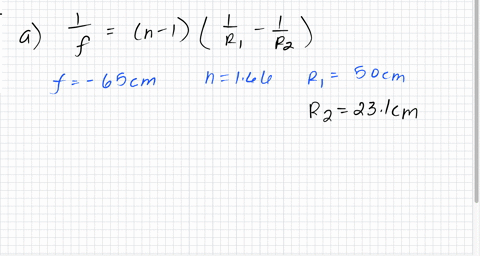 a) 1/f = (n-1) ( 1/R₁ - 1/R₂ )
f = -65cm n = 1.66 R₁ = 50cm
R₂ = 23.1cm